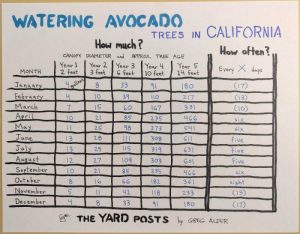 WATERING AVOCADO
TREES IN CALIFORNIA
How much?
How often?
CANOPY DIAMETER and APPROX. TREE AGE
MONTH Year 1 2 feet Year 2 3 feet Year 3 6 feet Year 4 10 feet Year 5 14 feet Every X days
January 4 gallons 8 33 91 180 (17)
February 4 10 39 110 217 (13)
March 7 15 60 167 331 (10)
April 10 21 85 235 466 six
May 11 25 98 273 541 six
June 13 28 111 308 611 five
July 13 29 115 319 631 five
August 12 27 109 303 601 five
September 10 21 85 235 466 six
October 8 16 66 182 361 eight
November 5 11 42 118 233 (11)
December 4 8 33 91 180 (17)
THE YARD POSTS by GREG ALDER